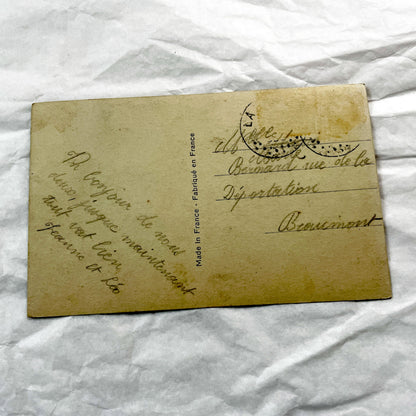 Un bonjour de nous
deux, jusque maintenant
tout va bien,
Jeanne et Léo
Made in France - Fabriqué en France
LA
Bernard rue de la
Déportation
Beaumont